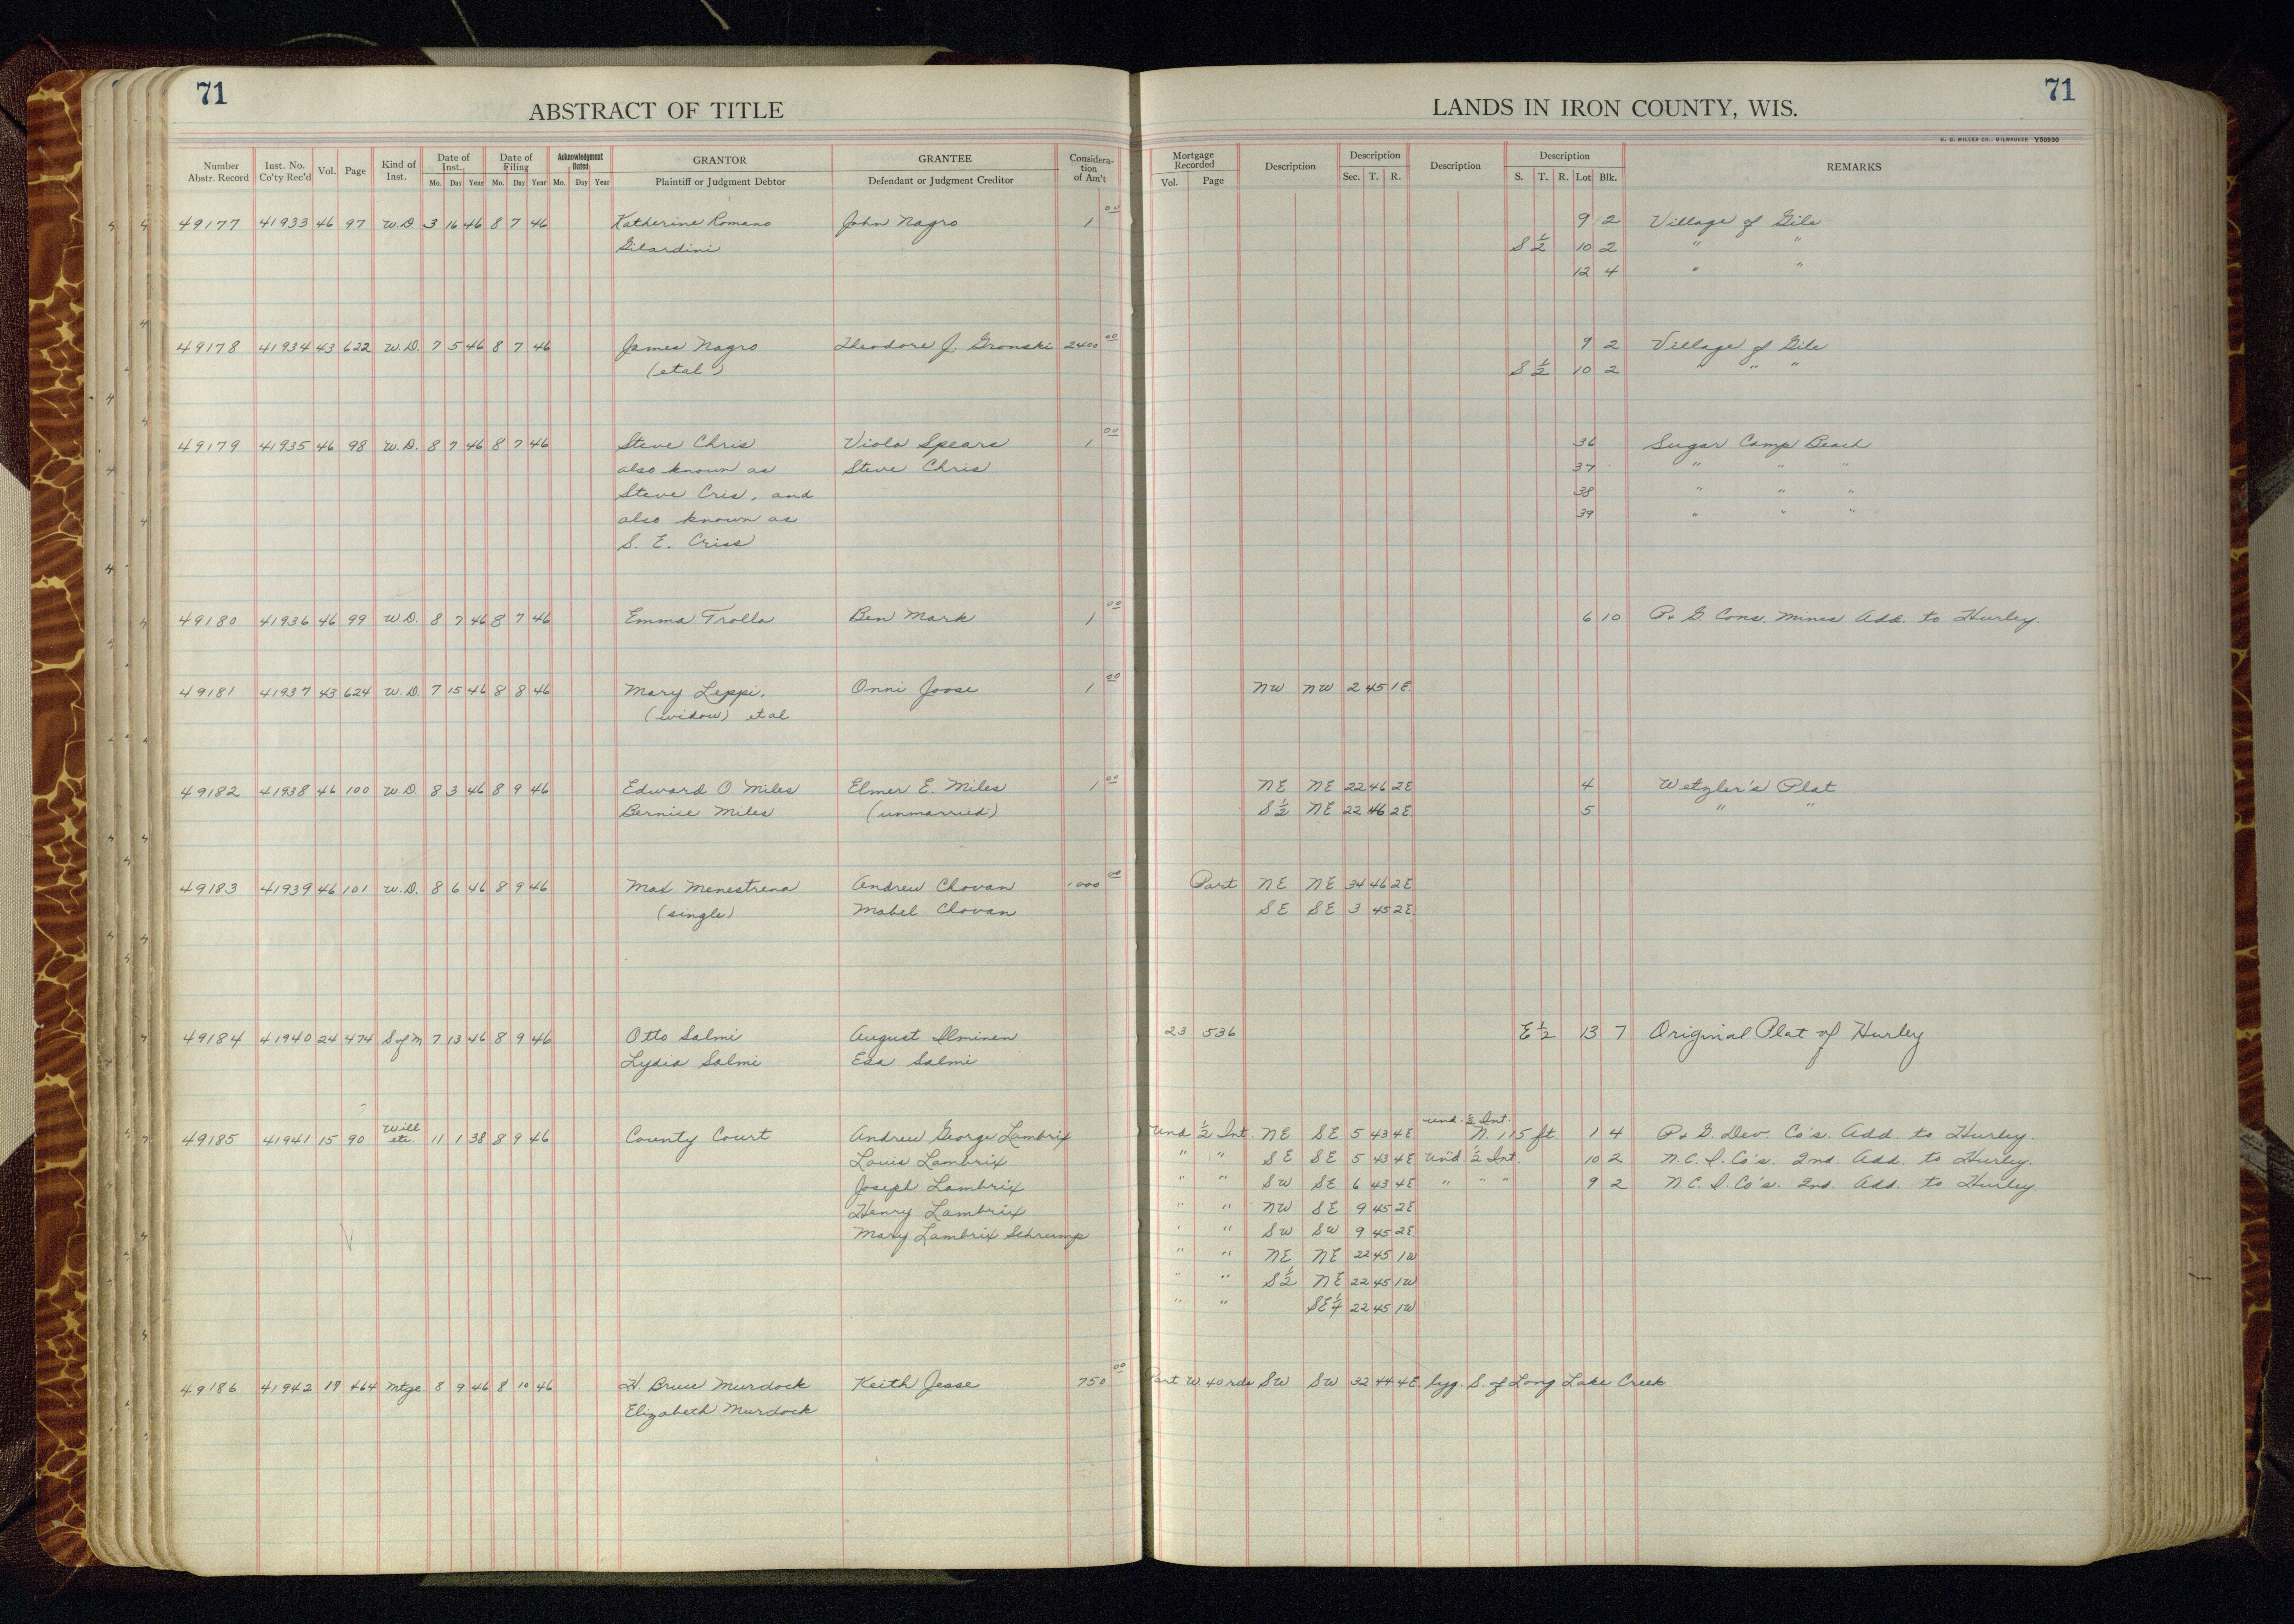 71
71
ABSTRACT OF TITLE
LANDS IN IRON COUNTY, WIS.
H. C. MILLER CO., MILWAUKEE Y50930
Number Abstr. Record Inst. No. Co'ty Rec'd Vol. Page Kind of Inst. Date of Inst. Mo. Day Year Date of Filing Mo. Day Year Acknowledgment Dated Mo. Day Year GRANTOR Plaintiff or Judgment Debtor GRANTEE Defendant or Judgment Creditor Considera-tion of Am't Mortgage Recorded Vol. Page Description Description Sec. T. R. Description Description S. T. R. Lot Blk. REMARKS
49177 41933 46 97 W.D. 3 16 46 8 7 46 Katherine Romano John Nagro 1 00 9 2 Village of Gile
Gilardini S 1/2 10 2 " "
12 4 " "
49178 41934 43 622 W.D. 7 5 46 8 7 46 James Nagro Theodore J. Gronski 2400 00 9 2 Village of Gile
(etal) S 1/2 10 2 " " "
49179 41935 46 98 W.D. 8 7 46 8 7 46 Steve Chris Viola Spears 1 00 36 Sugar Camp Beach
also known as Steve Chris 37 " " "
Steve Cris, and 38 " " "
also known as 39 " " "
S. E. Criss
49180 41936 46 99 W.D. 8 7 46 8 7 46 Emma Trolla Ben Mark 1 00 6 10 P. & G. Cons. Mines Add. to Hurley.
49181 41937 43 624 W.D. 7 15 46 8 8 46 Mary Leppi, Onni Joose 1 00 NW NW 2 45 1E.
(widow) etal
49182 41938 46 100 W.D. 8 3 46 8 9 46 Edward O. Miles Elmer E. Miles 1 00 NE NE 22 46 2E 4 Wetzler's Plat
Bernice Miles (unmarried) S 1/2 NE 22 46 2E. 5 " "
49183 41939 46 101 W.D. 8 6 46 8 9 46 Max Menestrena Andrew Chovan 1000 00 Part NE NE 34 46 2E
(single) Mabel Chovan SE SE 3 45 2E.
49184 41940 24 474 S of M 7 13 46 8 9 46 Otto Salmi August Ilminen 23 536 E 1/2 13 7 Original Plat of Hurley
Lydia Salmi Esa Salmi
49185 41941 15 90 Will etc. 11 1 38 8 9 46 County Court Andrew George Lambrix Und 1/2 Int. NE SE 5 43 4E und. 1/2 Int. N. 115 ft. 1 4 P. & G. Dev. Co's. Add. to Hurley.
Louis Lambrix " " SE SE 5 43 4E Und. 1/2 Int. 10 2 N.C.I. Co's. 2nd. Add. to Hurley.
Joseph Lambrix " " SW SE 6 43 4E " " " 9 2 N.C.I. Co's. 2nd. Add. to Hurley.
Henry Lambrix " " NW SE 9 45 2E
Mary Lambrix Schrump " " SW SW 9 45 2E
" " NE NE 22 45 1W
" " S 1/2 NE 22 45 1W
" " SE 1/4 22 45 1W
49186 41942 19 464 Mtge 8 9 46 8 10 46 H. Bruce Murdock Keith Jesse 750 00 Part W 40 rds SW SW 32 44 4E lyg. S. of Long Lake Creek.
Elizabeth Murdock